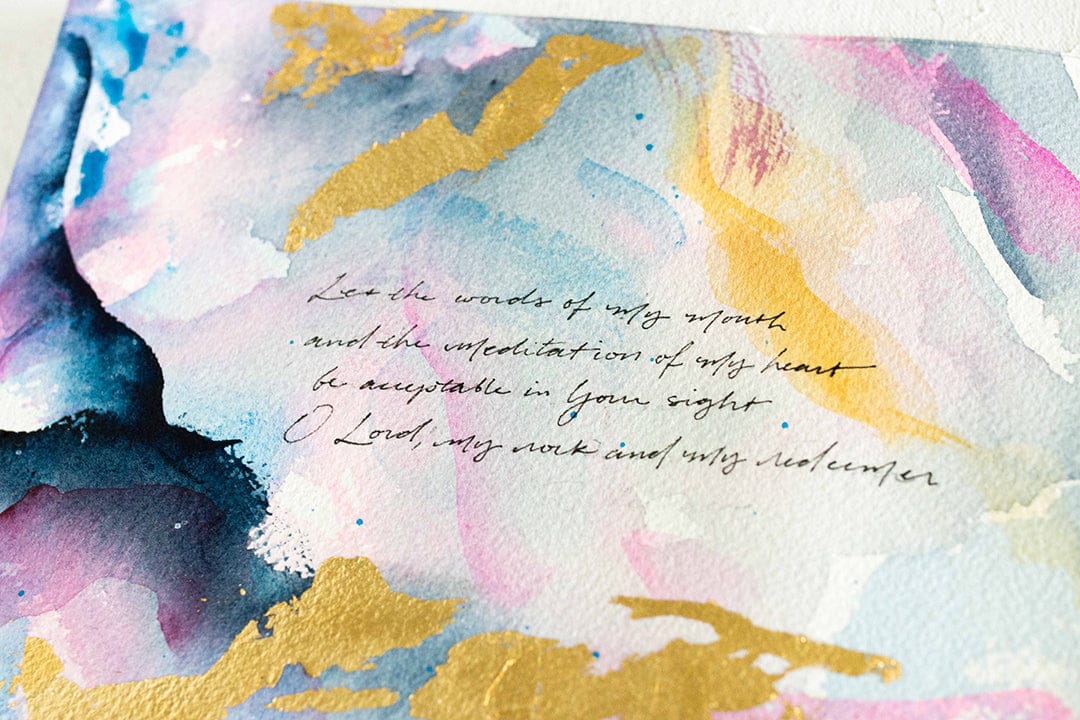 Let the words of my mouth
and the meditation of my heart
be acceptable in Your sight
O Lord, my rock and my redeemer